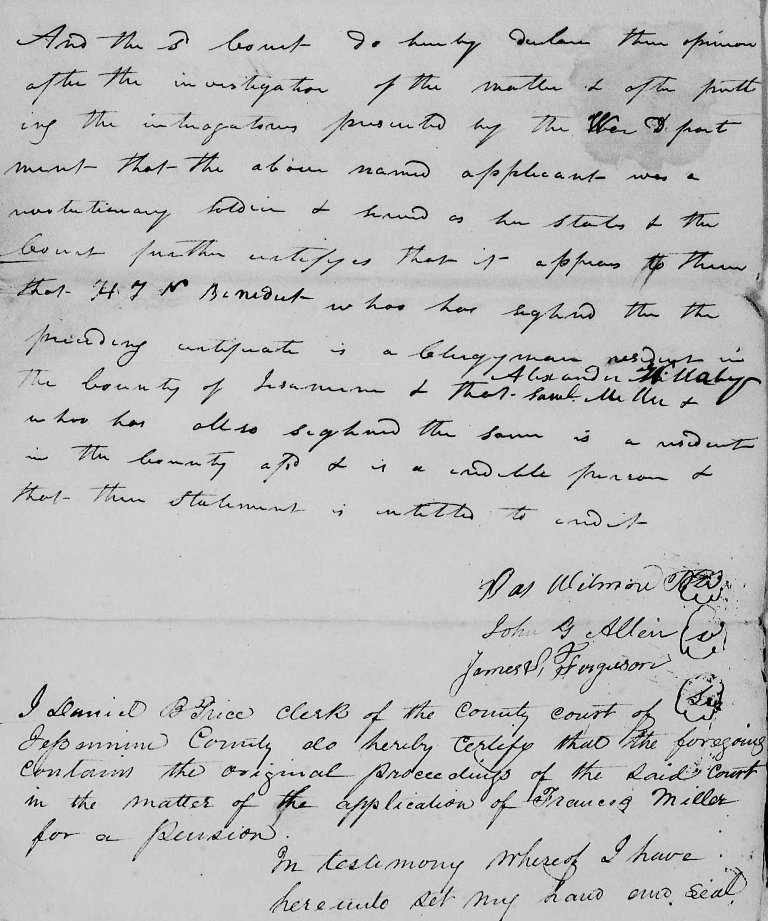 And the sd Court do hereby declare their opinion
after the investigation of the matter & after putt
ing the interogatories presented by the War Depart
ment that the above named applicant was a
revolutionary soldier & served as he states & the
Court further certifyes that it appears to them
that H. J N Benedict whoo has seghnd the the
preceding certificate is a Clergyman resident in
the County of Jesamine & that Alexander Hillaby
Saml. Miller &
whoo has allso seghned the same is a resident
in the County afsd & is a credible person & 
that their statement is intitled to credit
Wilmore
John G Allen
James Ferguson Seal
I Daniel B Price Clerk of the County Court of
Jessamine County do hereby certify that the foregoing
contains the original proceedings of the said court
in the matter of the application of Francis Miller
for a pension.
In testimony whereof I have
hereunto set my hand and seal